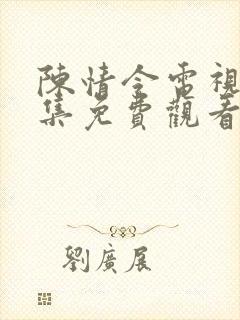 陳情令電視
集免費觀看
劉廣展